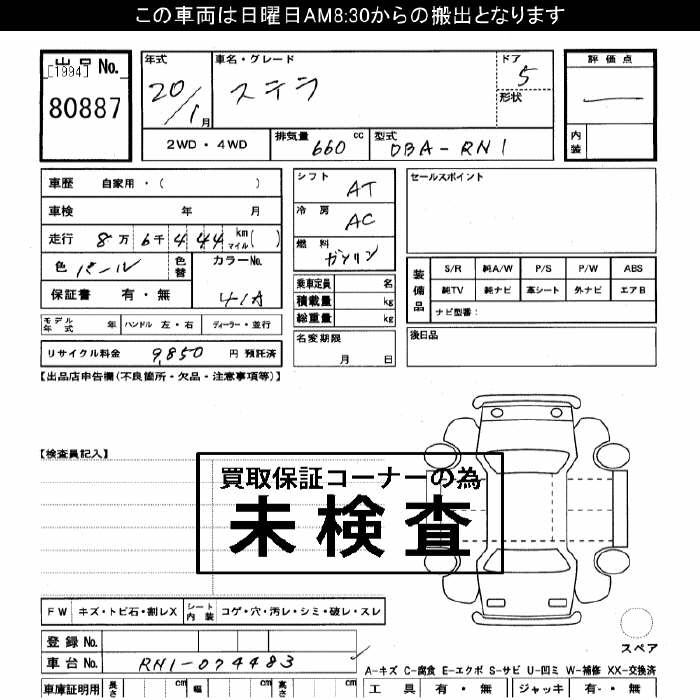 この車両は日曜日AM8:30からの搬出となります
出品 [1994] No.
80887
年式 20/1月
車名・グレード ステラ
ドア 5
形状
評価点
―
内装
2WD・4WD
排気量 660 cc
型式 DBA-RN1
車歴 自家用・( )
車検 年 月
走行 8万 6千 4 44 km マイル( )
色 パール 色替 カラーNo. 41A
保証書 有・無
シフト AT
冷房 AC
燃料 ガソリン
乗車定員 名
積載量 kg
総重量 kg
セールスポイント
装備品
S/R 純A/W P/S P/W ABS
純TV 純ナビ 革シート 外ナビ エアB
ナビ型番:
モデル年式 年 ハンドル 左・右 ディーラー・並行
名変期限
月 日
後日品
リサイクル料金 9,850 円 預託済
【出品店申告欄(不良箇所・欠品・注意事項等)】
【検査員記入】
買取保証コーナーの為
未検査
FW キズ・トビ石・割レX シート内装 コゲ・穴・汚レ・シミ・破レ・スレ
スペア
登録No.
車台No. RN1-074483
A-キズ C-腐食 E-エクボ S-サビ U-凹ミ W-補修 XX-交換済
車庫証明用 長さ cm 幅 cm 高さ cm
工具 有・無 ジャッキ 有・無